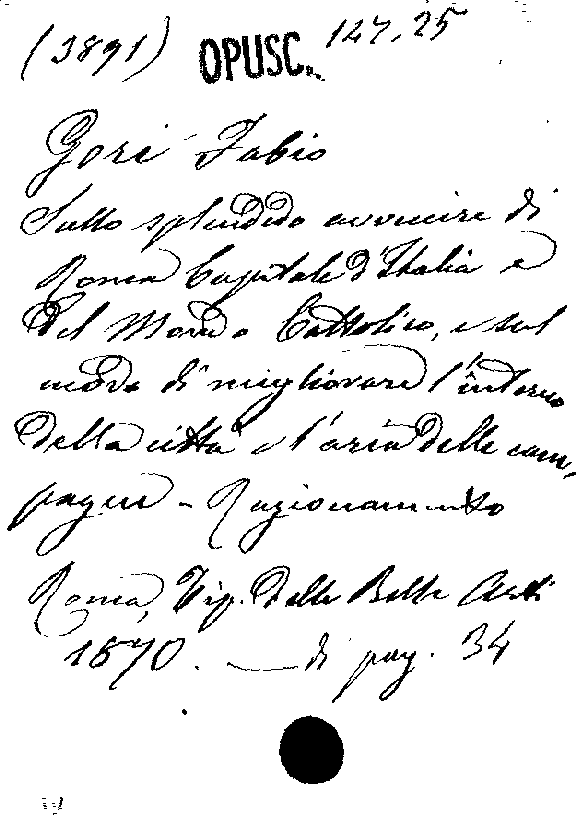 (3891) OPUSC. 127.25
Gori Fabio
Sullo splendido avvenire di
Roma Capitale d'Italia e
del Mondo Cattolico, e sul
modo di migliorare l'interno
della città e l'aria delle cam,
pagne - Ragionamento
Roma, Tip. delle Belle Arti
1870. — di pag. 34